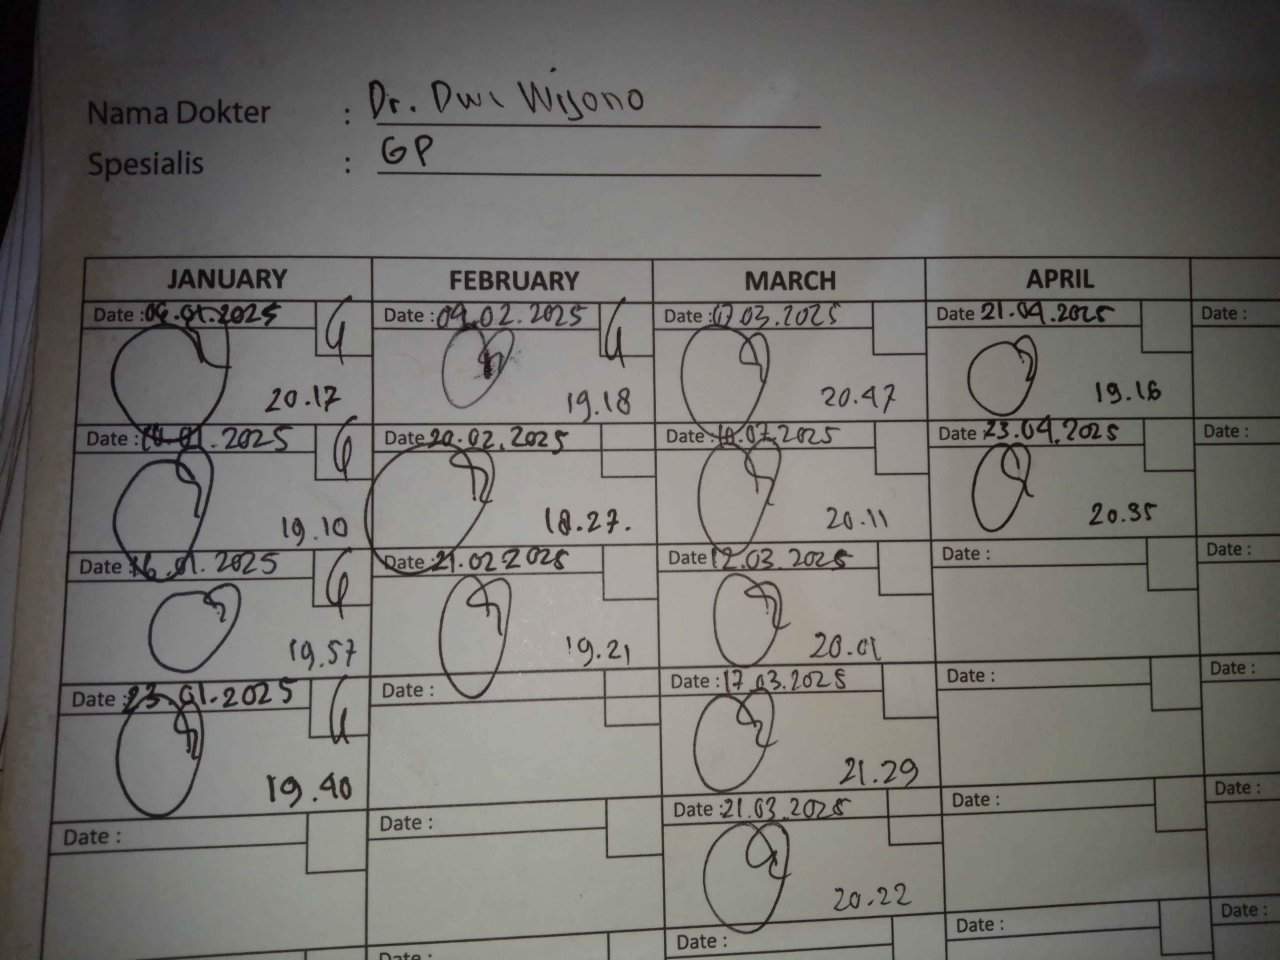 Nama Dokter : Dr. Dwi Wiyono
Spesialis : GP
JANUARY FEBRUARY MARCH APRIL
Date : .01.2025 Date : 09.02.2025 Date : 07 03.2025 Date 21.04.2025 Date :
20.17 19.18 20.47 19.16
Date : .2025 Date 20.02.2025 Date : 2025 Date 23.04.2025 Date :
19.10 18.27. 20.11 20.35
Date 16.01.2025 Date : 21.02 2025 Date 12.03.2025 Date : Date :
19.57 19.21 20.01
Date : 23.01.2025 Date : Date : 17.03.2025 Date : Date :
19.40 21.29
Date : Date : Date : 21.03.2025 Date : Date :
20.22
Date : Date : Date : Date :